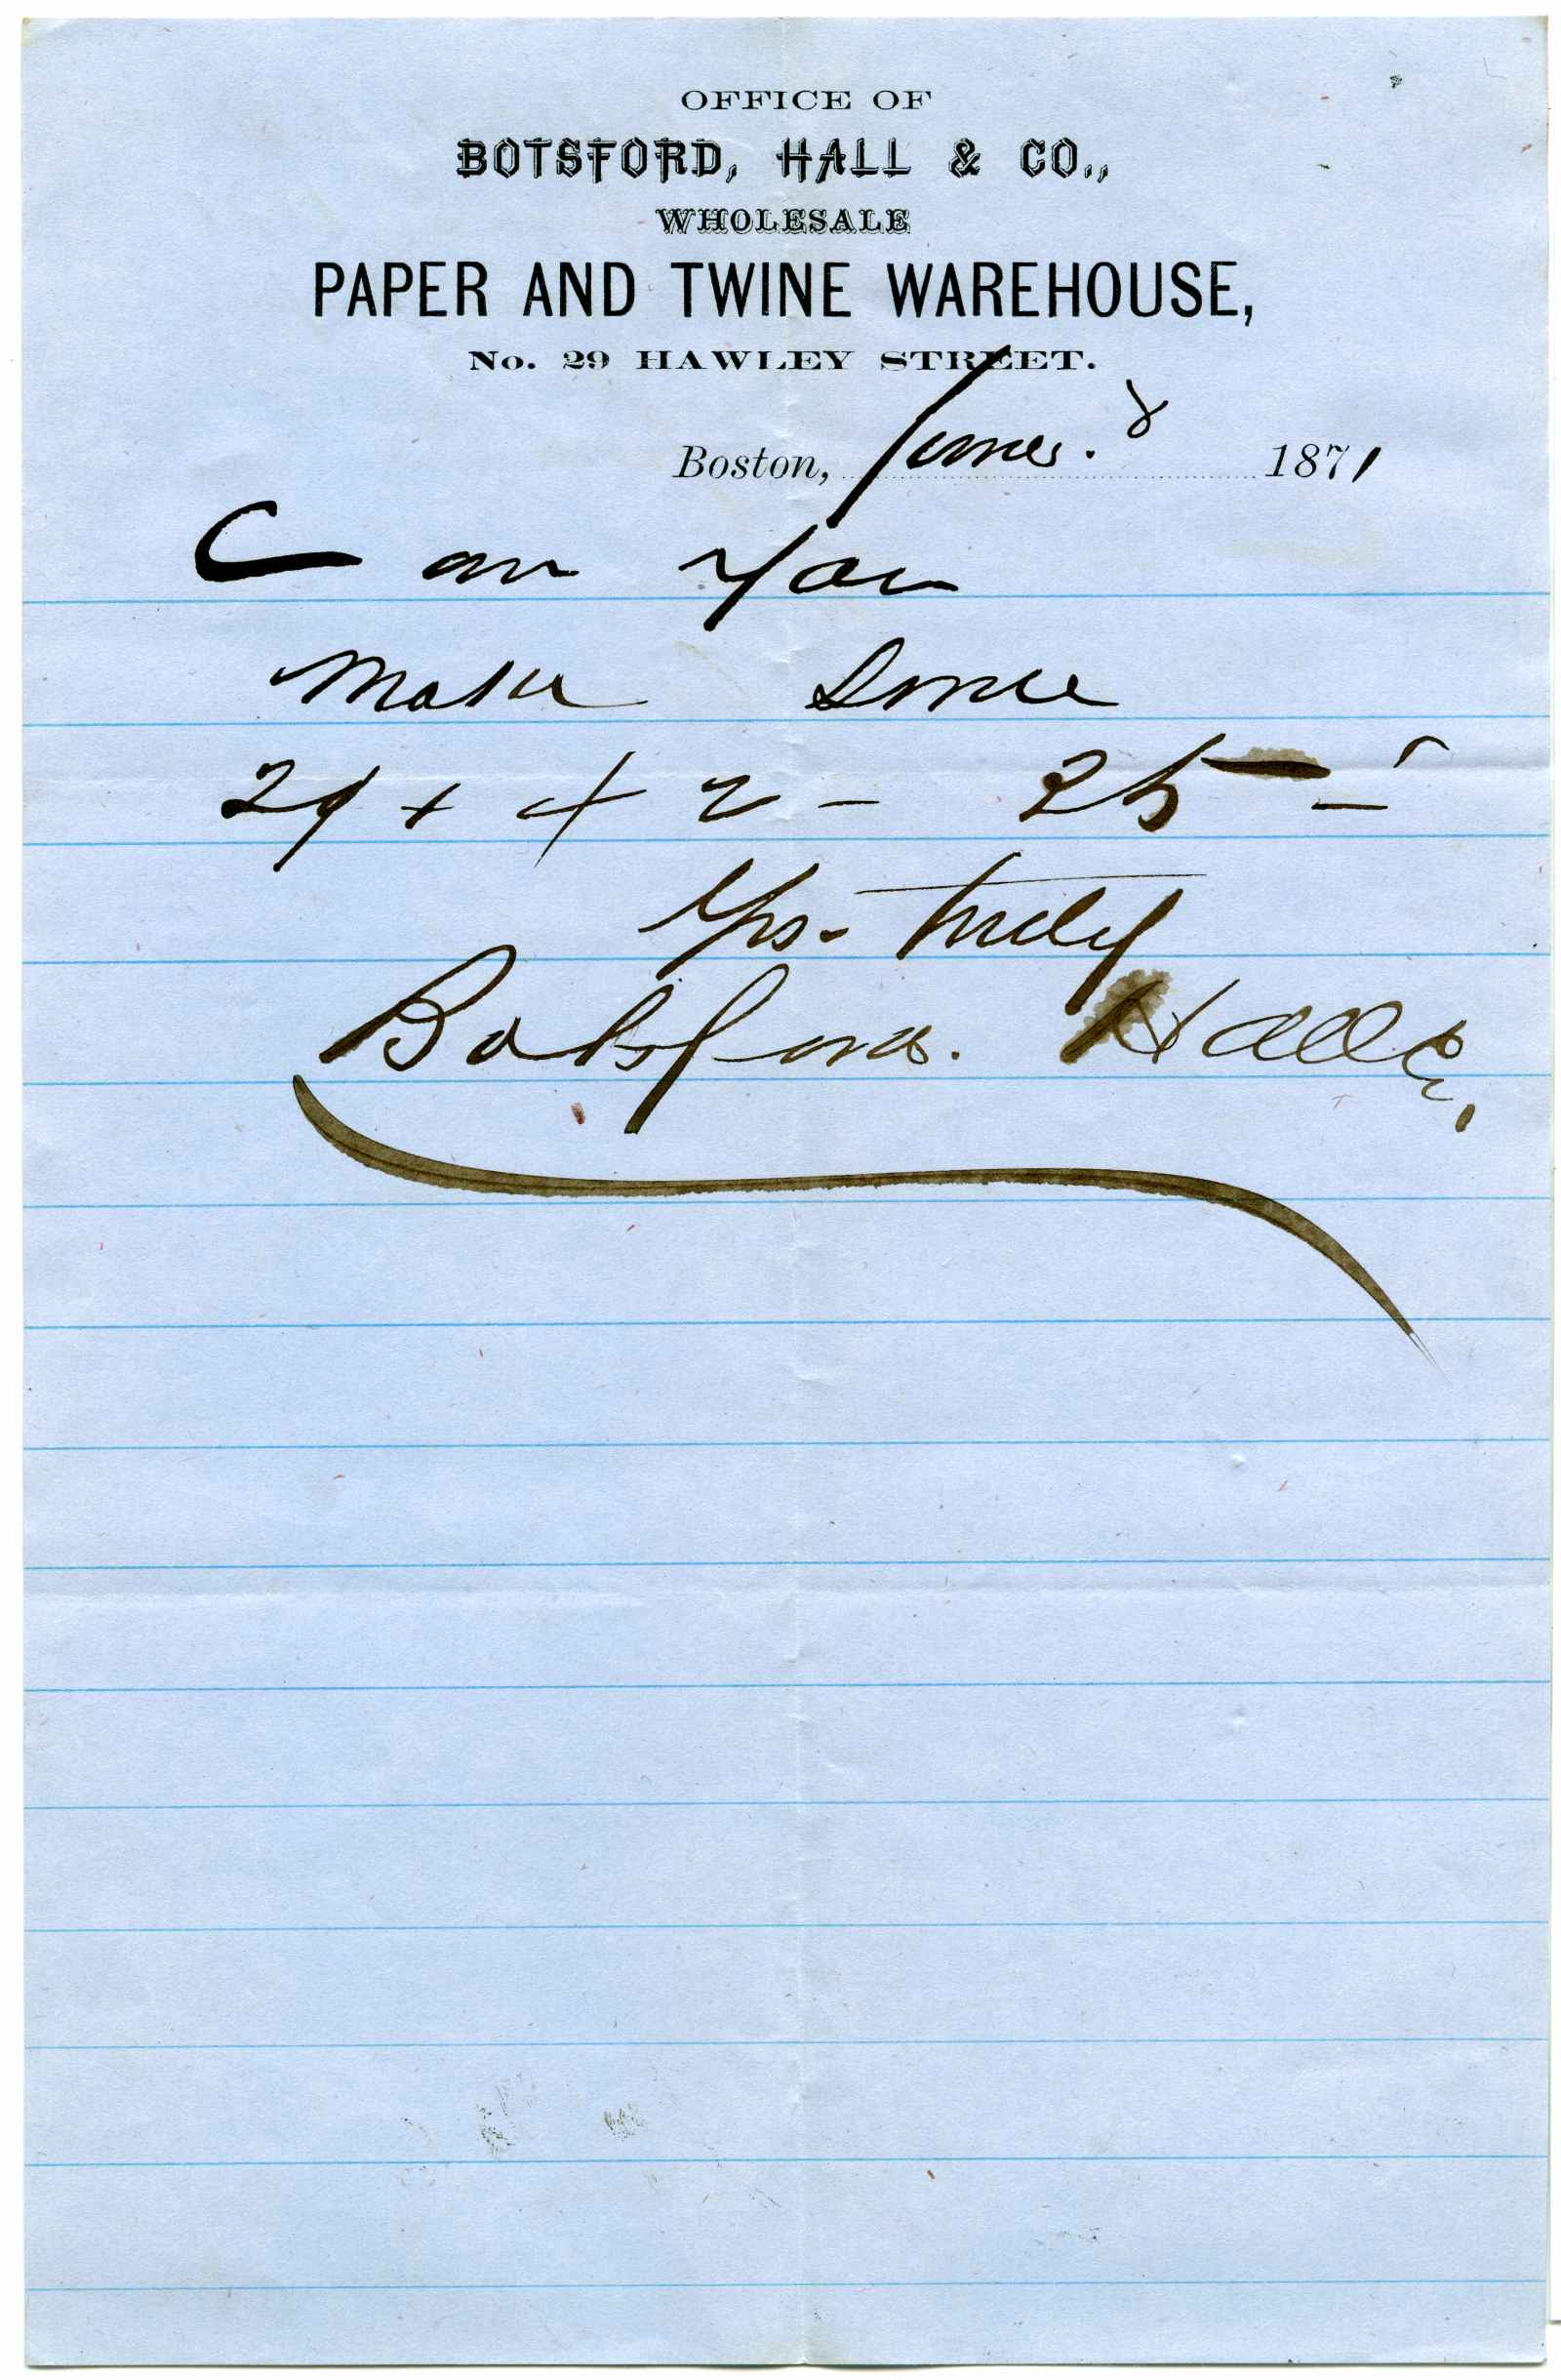 OFFICE OF
BOTSFORD, HALL & CO.,
WHOLESALE
PAPER AND TWINE WAREHOUSE,
No. 29 HAWLEY STREET.
Boston, June 8 1871
Can You
Make Some
29 + 42 - 25
Yrs. truly
Botsford. Hall & Co.